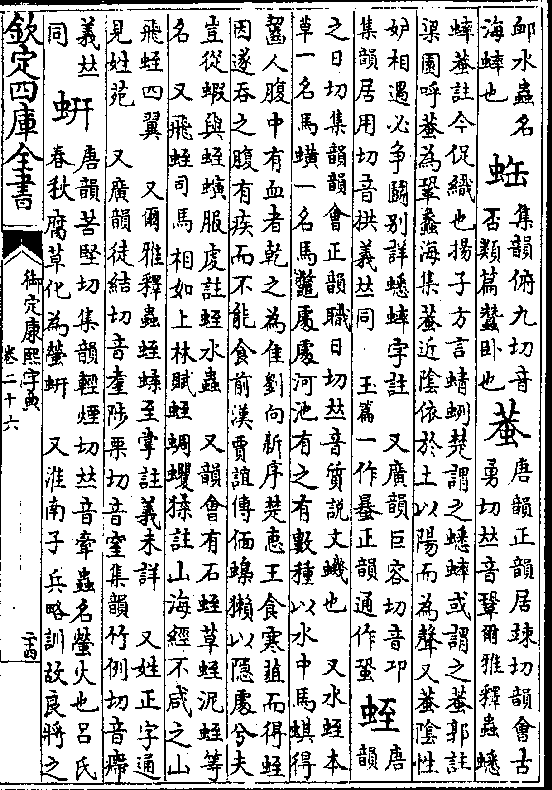 衈水蟲名 䖯 集韻俯九切音否類篇蟄卧也 蛬 唐韻正韻居竦切韻會古勇切𠀤音鞏爾雅釋蟲蟋
海蟀也
蟀蛬註今促織也揚子方言蜻蛚楚謂之蟋蟀或謂之蛬郭註
梁園呼蛬為鞏蠡海集蛬近陰依於土以陽而為聲又蛬陰性
妒相遇必争鬭別詳蟋蟀字註 又廣韻巨容切音邛
集韻居用切音拱義𠀤同 玉篇一作䗪正韻通作蛩 蛭 唐韻
之日切集韻韻會正韻職日切𠀤音質説文蟣也 又水蛭本
草一名馬蟥一名馬鼈處處河池有之有數種以水中馬蜞得
齧人腹中有血者乾之為佳劉向新序楚惠王食寒葅而得蛭
因遂吞之腹有疾而不能食前漢賈誼傳偭蟂獺以隱處兮夫
豈從蝦與蛭螾服虔註蛭水蟲 又韻會有石蛭草蛭泥蛭等
名 又飛蛭司馬相如上林賦蛭蜩蠼猱註山海經不咸之山
飛蛭四翼 又爾雅釋蟲蛭蝚至掌註義未詳 又姓正字通
見姓苑 又廣韻徒結切音耋陟栗切音窒集韻竹例切音㿃
義𠀤同 蚈 唐韻苦堅切集韻輕煙切𠀤音牽蟲名螢火也呂氏
春秋腐草化為螢蚈 又淮南子兵略訓故良將之
欽定四庫全書
御定康熙字典
卷二十六
二十四